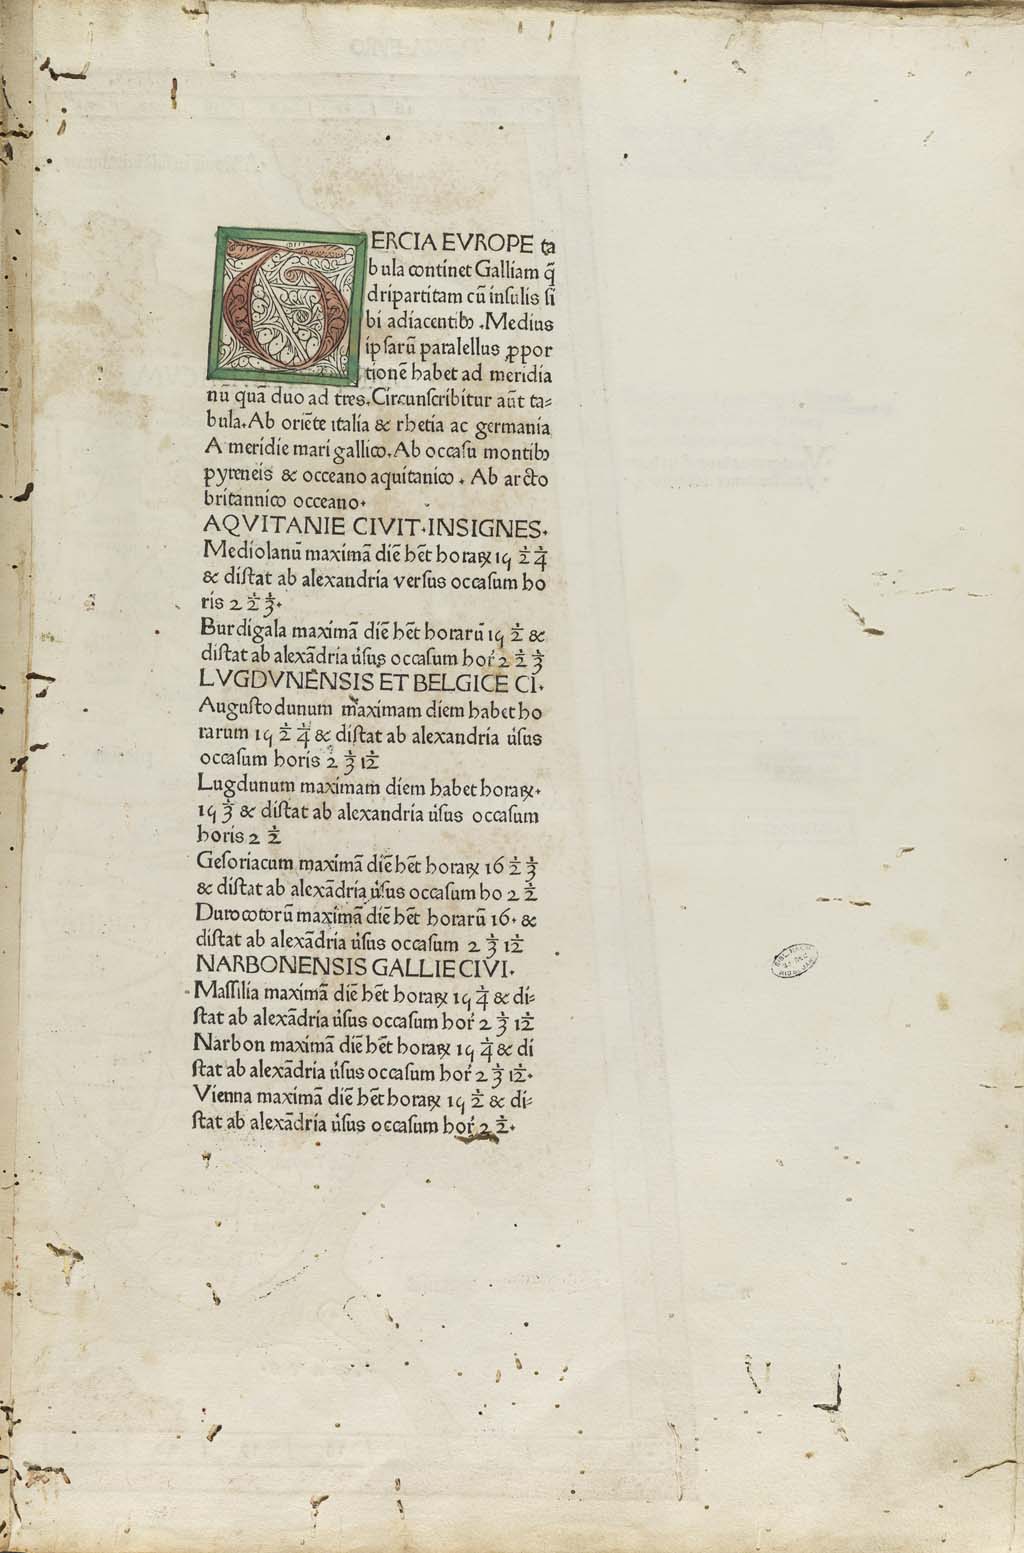 TERCIA EVROPE ta
bula continet Galliam q̃
dripartitam cũ insulis si
bi adiacentibꝫ .Medius
ipsarũ paralellus ꝓpor
tionẽ habet ad meridia
nũ quã duo ad tres.Circunscribitur aũt ta=
bula.Ab oriẽte italia & rhetia ac germania
A meridie mari gallico.Ab occasu montibꝫ
pyreneis & occeano aquitanico . Ab arcto
britannico occeano.
AQVITANIE CIVIT.INSIGNES.
Mediolanũ maximã diẽ hẽt horaꝝ 15 ½ ¼
& distat ab alexandria versus occasum ho
ris 2 ½ ⅓.
Burdigala maximã diẽ hẽt horarũ 15 ½ &
distat ab alexãdria ủsus occasum hoꝛ̉ 2 ½ ⅓
LVGDVNENSIS ET BELGICE CI.
Augustodunum maximam diem habet ho
rarum 15 ½ ¼ & distat ab alexandria ủsus
occasum horis 2 ⅓ 1/12
Lugdunum maximam diem habet horaꝝ.
15 ⅓ & distat ab alexandria ủsus occasum
horis 2 ½
Gesoriacum maximã diẽ hẽt horaꝝ 16 ½ ⅓
& distat ab alexãdria ủsus occasum ho 2 ½
Durocotorũ maximã diẽ hẽt horarũ 16. &
distat ab alexãdria ủsus occasum 2 ⅓ 1/12
NARBONENSIS GALLIE CIVI.
Massilia maximã diẽ hẽt horaꝝ 15 ¼ & di=
stat ab alexãdria ủsus occasum hoꝛ̉ 2 ⅓ 1/12
Narbon maximã diẽ hẽt horaꝝ 15 ¼ & di
stat ab alexãdria ủsus occasum hoꝛ̉ 2 ⅓ 1/12.
Vienna maximã diẽ hẽt horaꝝ 15 ½ & di=
stat ab alexãdria ủsus occasum hoꝛ̉ 2 ½.